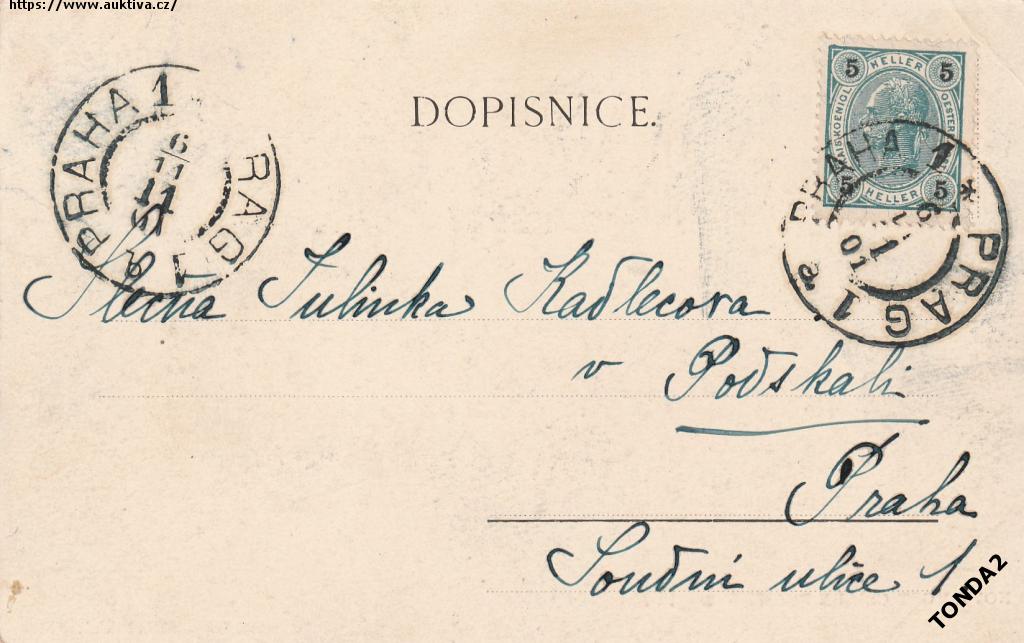 https://www.auktiva.cz/
DOPISNICE.
5 HELLER 5
KAISKOENIGL OESTER
5 HELLER 5
PRAHA 1
6/11
PRAG 1
PRAHA 1 * PRAG 1 a
6
1
01
Slečna Julinka Kadlecova
v Podskali
Praha
Soudní ulice 1
TONDA2